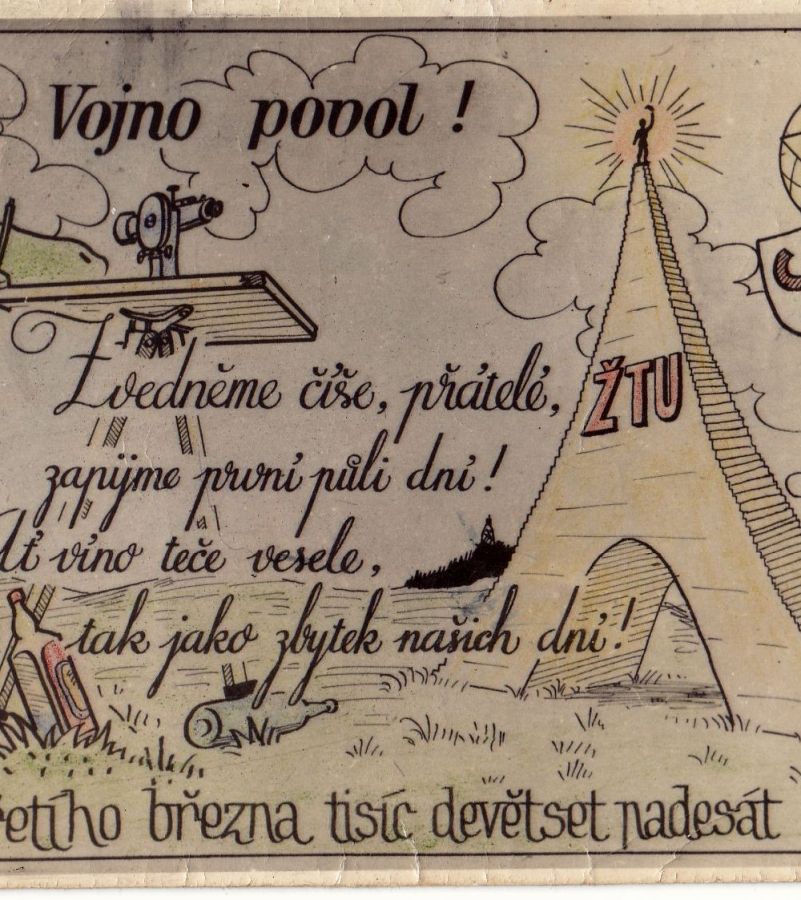 Vojno povol !
Zvedněme číše, přátelé,
ŽTU
zapijme první půli dní !
Ať víno teče vesele,
tak jako zbytek našich dní !
řetího března tisíc devětset padesát